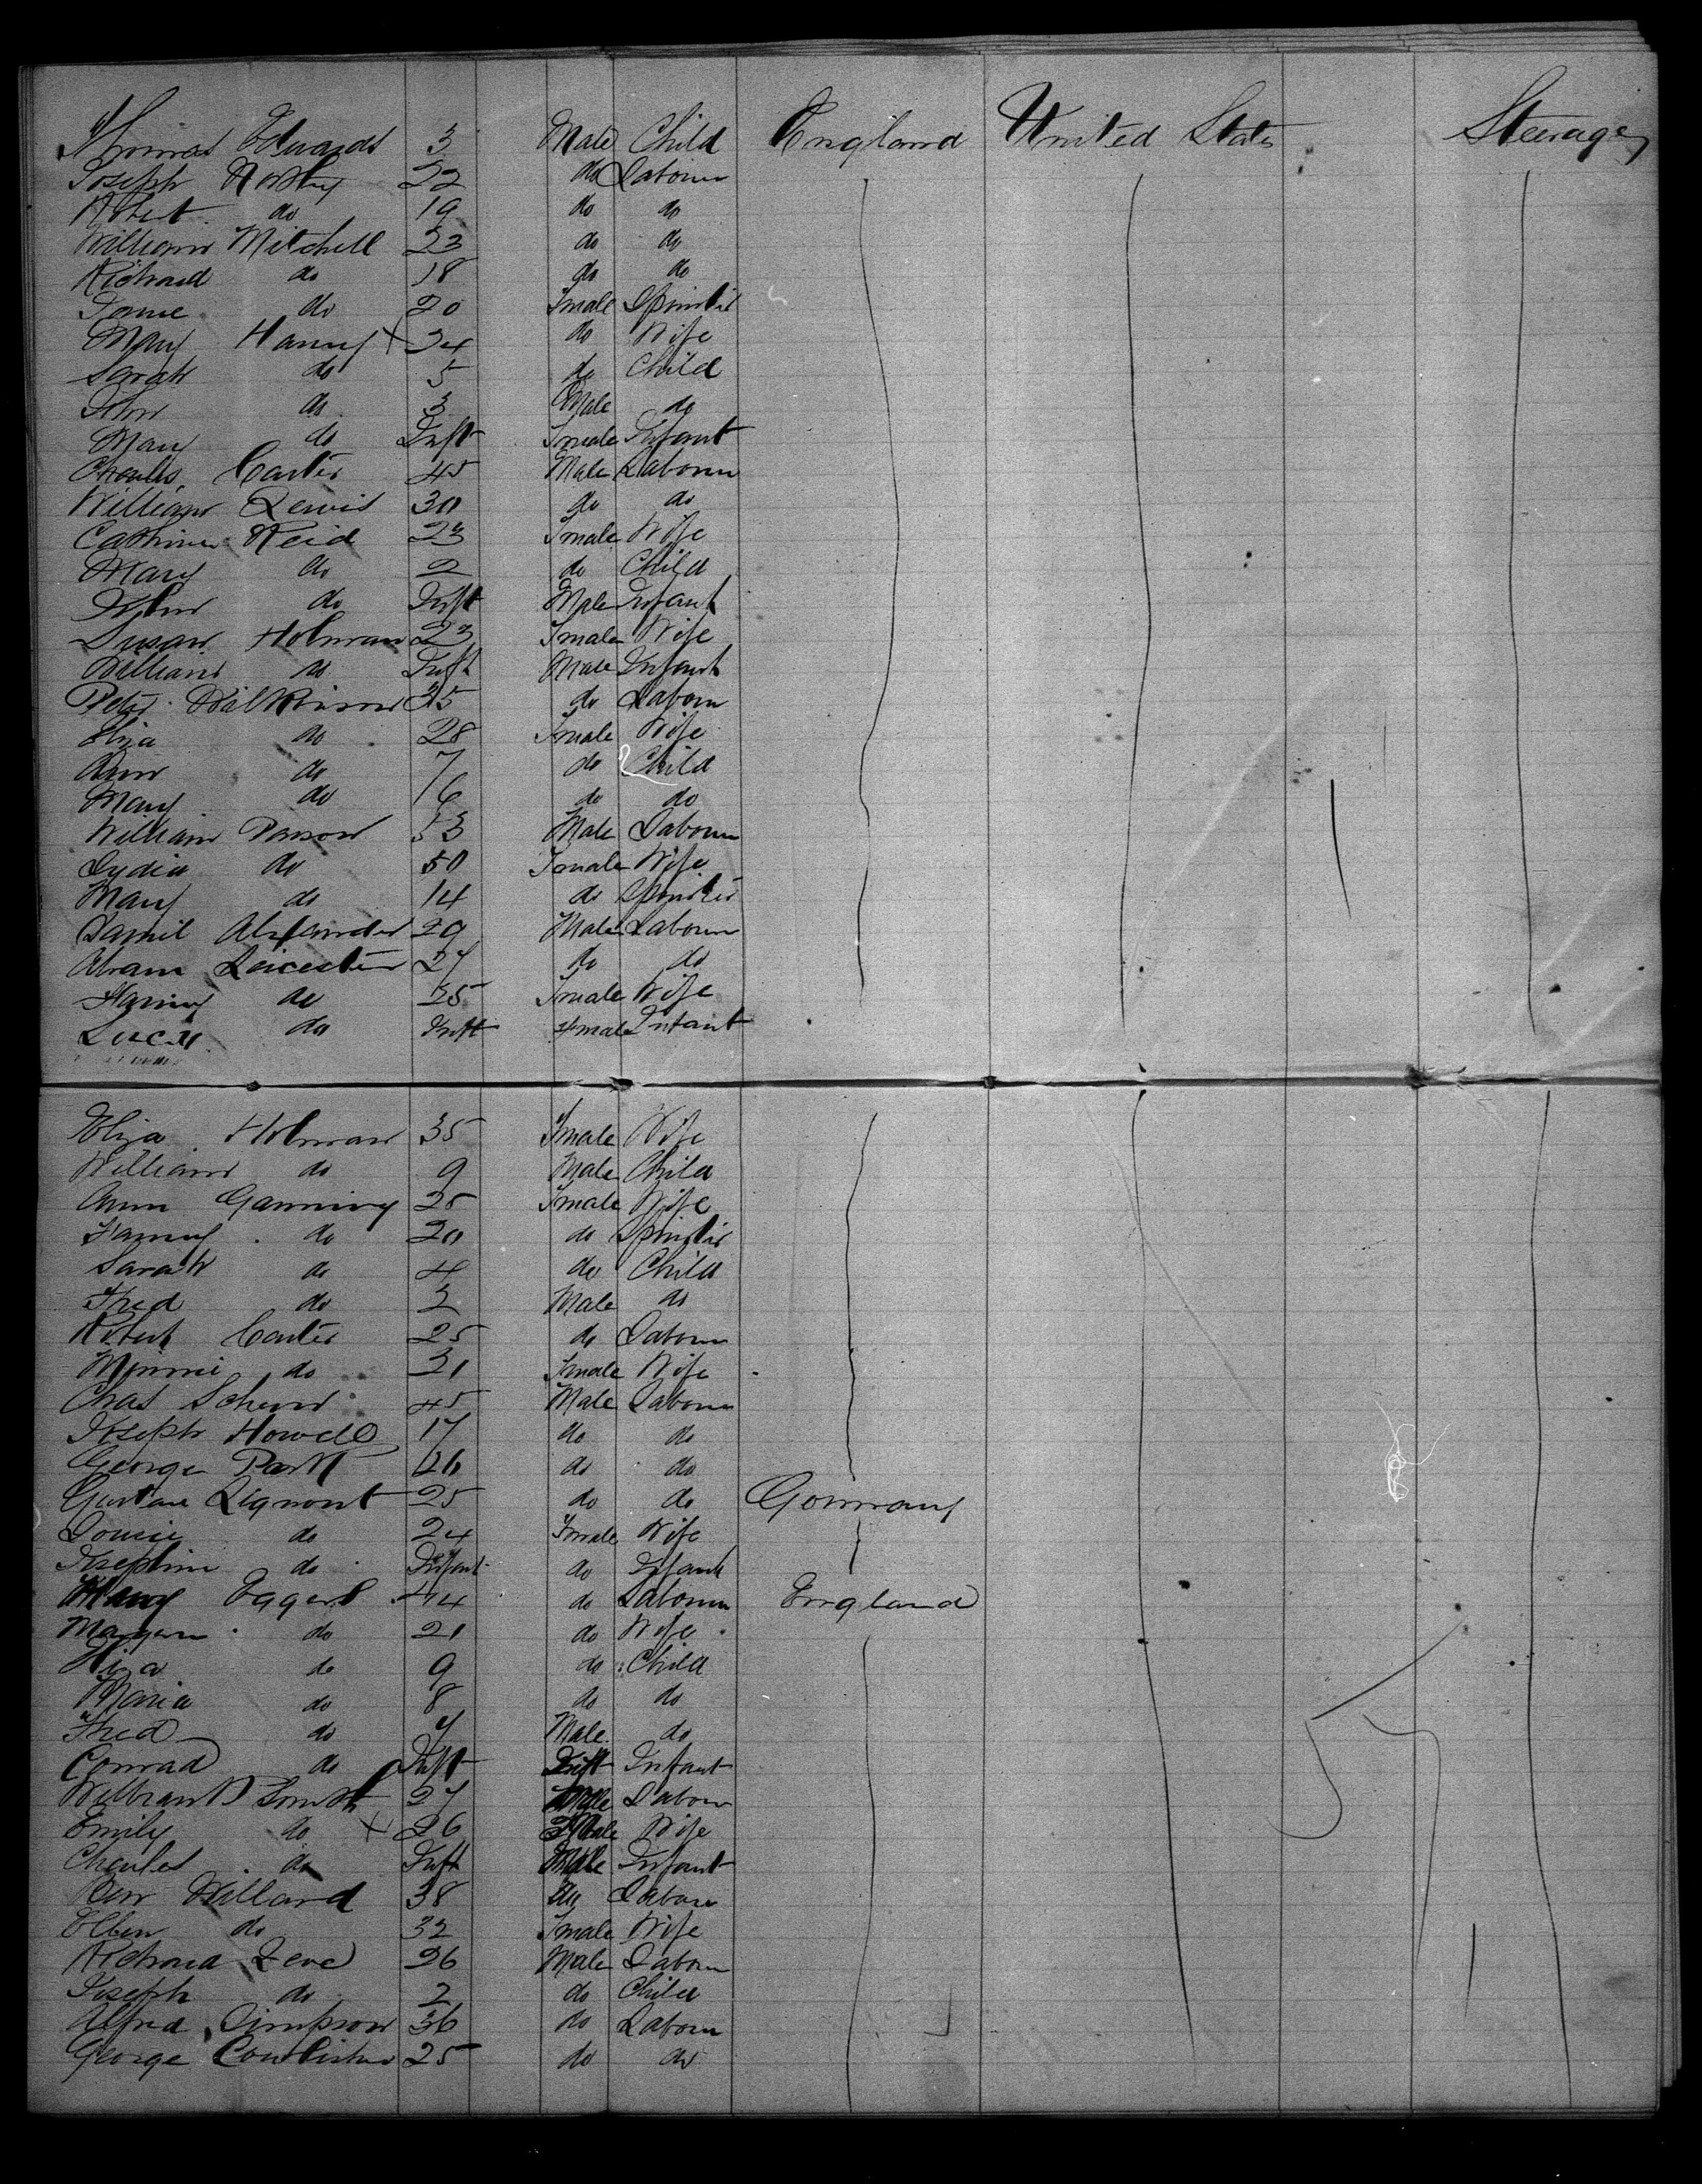 Thomas Edwards 3 Male Child England United States Steerage
Joseph 22 do Labourer
Robert do 19 do do
William Mitchell 23 do do
Richard do 18 do do
do 20 Fmale Spinster
Mary Hanny x 24 do Wife
Sarah do 5 do Child
John do 3 Male do
Mary do Inft Fmale Infant
Charles Carter 45 Male Labourer
William Lewis 30 do do
Cathrine Reid 23 Fmale Wife
Mary do 2 do Child
John do Inft Male Infant
Susan Holman 23 Fmale Wife
William do Inft Male Infant
Peter Wilkinson 35 do Labour
Eliza do 28 Fmale Wife
Ann do 7 do Child
Mary do 6 do do
William Parson 53 Male Labourer
Lydia do 50 Fmale Wife
Mary do 14 do Spinster
Daniel Alexander 29 Male Labourer
Abram Leicester 27 do do
Hanny do 25 Fmale Wife
Lucy do Inft Fmale Infant
Eliza Holman 35 Fmale Wife
William do 9 Male Child
Ann Ganning 25 Fmale Wife
Fanny do 20 do Spinster
Sarah do 4 do Child
Fred do 3 Male do
Robert Carter 25 do Labour
Minnie do 21 Fmale Wife
Chas 45 Male Labour
Joseph Howell 17 do do
George Park do do
Gustave 25 do do Germany
Louise do 24 Fmale Wife
Josephine do Infant do Infant
Eggert 44 do Labourer England
do 21 do Wife
Eliza do 9 do Child
Maria do 8 do do
Fred do 7 Male do
Conrad do Inft Infant
Smith 27 Male Labour
Emily do x 26 Wife
Charles do Inft Male Infant
Ben Willard 38 do Labour
Ellen do 32 Fmale Wife
Richard 26 Male Labour
Joseph do 2 do Child
Alfred Simpson 36 do Labour
George 25 do do